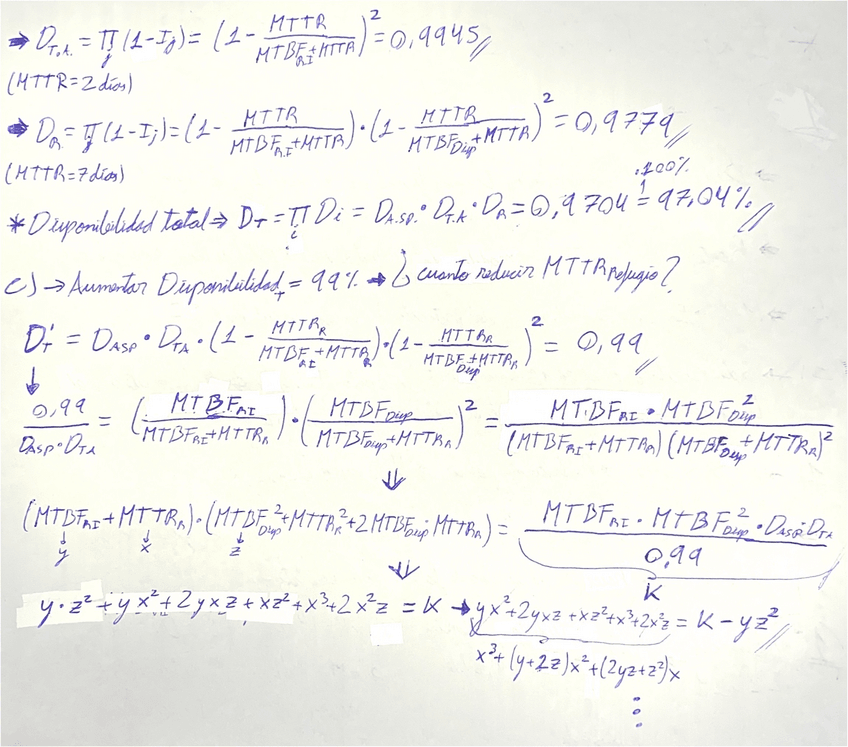 ➔ D_{T.A.} = ∏_j (1-I_j) = (1 - MTTR / (MTBF_{RI}+MTTR))^2 = 0,9945 //
(MTTR = 2 días)
➔ D_R = ∏_j (1-I_j) = (1 - MTTR / (MTBF_{RI}+MTTR)) · (1 - MTTR / (MTBF_{Dup}+MTTR))^2 = 0,9779 //
(MTTR = 7 días)
·100%
* Disponibilidad total ⇒ D_T = ∏_i D_i = D_{A.SP.} · D_{T.A} · D_R = 0,9704 = 97,04% //
c) → Aumentar Disponibilidad_T = 99% ➔ ¿cuanto reducir MTTR_{Refugio}?
D'_T = D_{ASP} · D_{TA} · (1 - MTTR_R / (MTBF_{RI}+MTTR_R)) · (1 - MTTR_R / (MTBF_{Dup}+MTTR_R))^2 = 0,99 //
↓
0,99 / (D_{ASP}·D_{TA}) = (MTBF_{RI} / (MTBF_{RI}+MTTR_R)) · (MTBF_{Dup} / (MTBF_{Dup}+MTTR_R))^2 = MTBF_{RI} · MTBF_{Dup}^2 / ((MTBF_{RI}+MTTR_R)(MTBF_{Dup}+MTTR_R)^2)
⇓
(MTBF_{RI}+MTTR_R)·(MTBF_{Dup}^2+MTTR_R^2+2MTBF_{Dup}·MTTR_R) = MTBF_{RI} · MTBF_{Dup}^2 · D_{ASP}·D_{TA} / 0,99
↓ ↓ ↓
y x z
K
⇓
y·z²+yx²+2yxz+xz²+x³+2x²z = K ➔ yx²+2yxz+xz²+x³+2x²z = K-yz² //
x³+(y+2z)x²+(2yz+z²)x
⋮